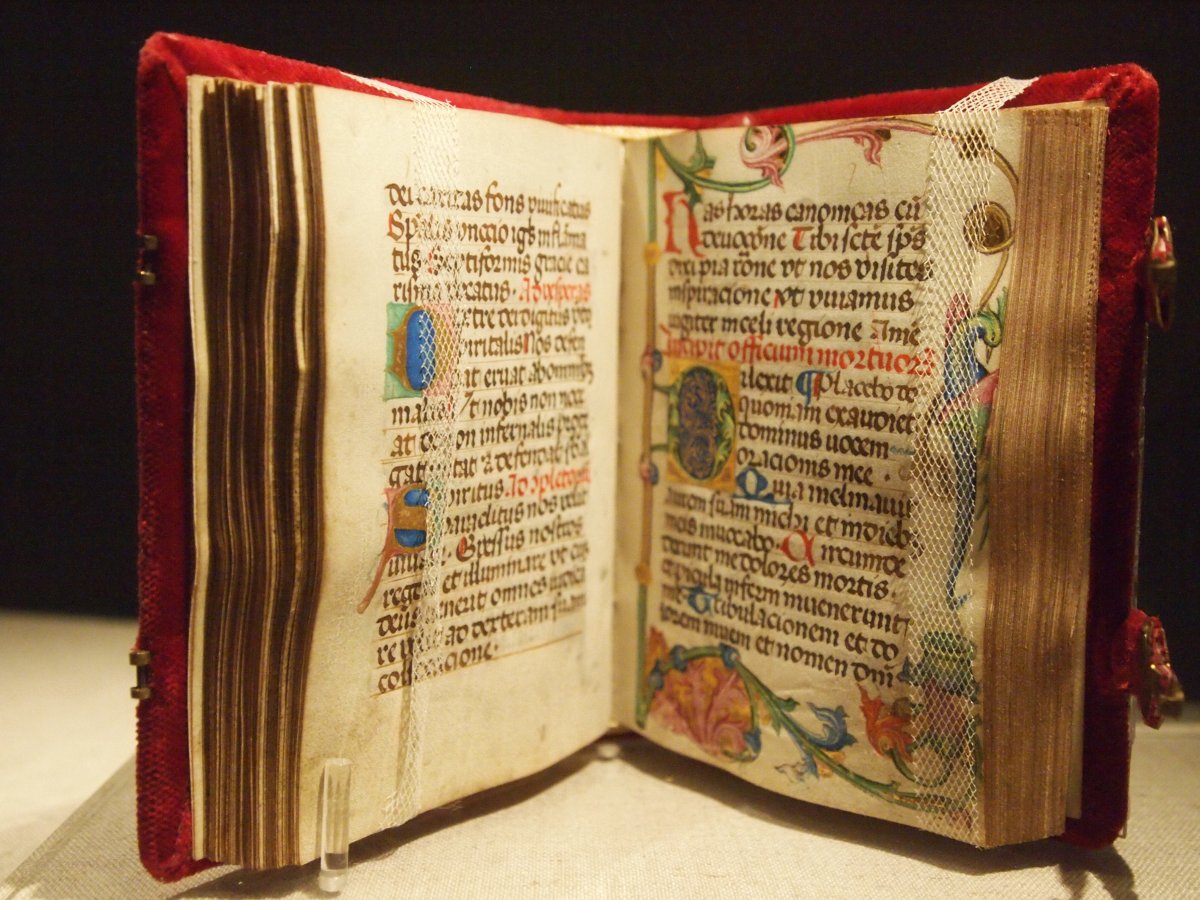 dei caritas fons viuificatus
Sp̄alis vnccio igīs inflāma
tus Septiformis gracie ca
risma vocatus. Ad vesperas
Dextre dei digitus
spiritalis Nos defen
dat eruat ab omnibꝫ
malis Vt nobis non noce
at demon infernalis proteg
gat
spiritus Ad
nos velit
Gressus nostros
regere et illuminare vt cus
deus venerit omnes iudica
re velit ad dexteram suam
Has horas canonicas cū
deuocōne Tibi scē sp̄s
dixi pia rōne vt nos visites
inspiracione vt viuamus
iugiter in celi regione Amē
Incipit officium mortuorū
Dilexit Placebo do
quoniam exaudiet
dominus uocem
oracionis mee.
Quia inclinauit
aurem suam michi et in dieb
meis inuocabo. Circumde
derunt me dolores mortis.
et pericula inferni inuenerunt
me Tribulacionem et do
lorem inueni et nomen dnī